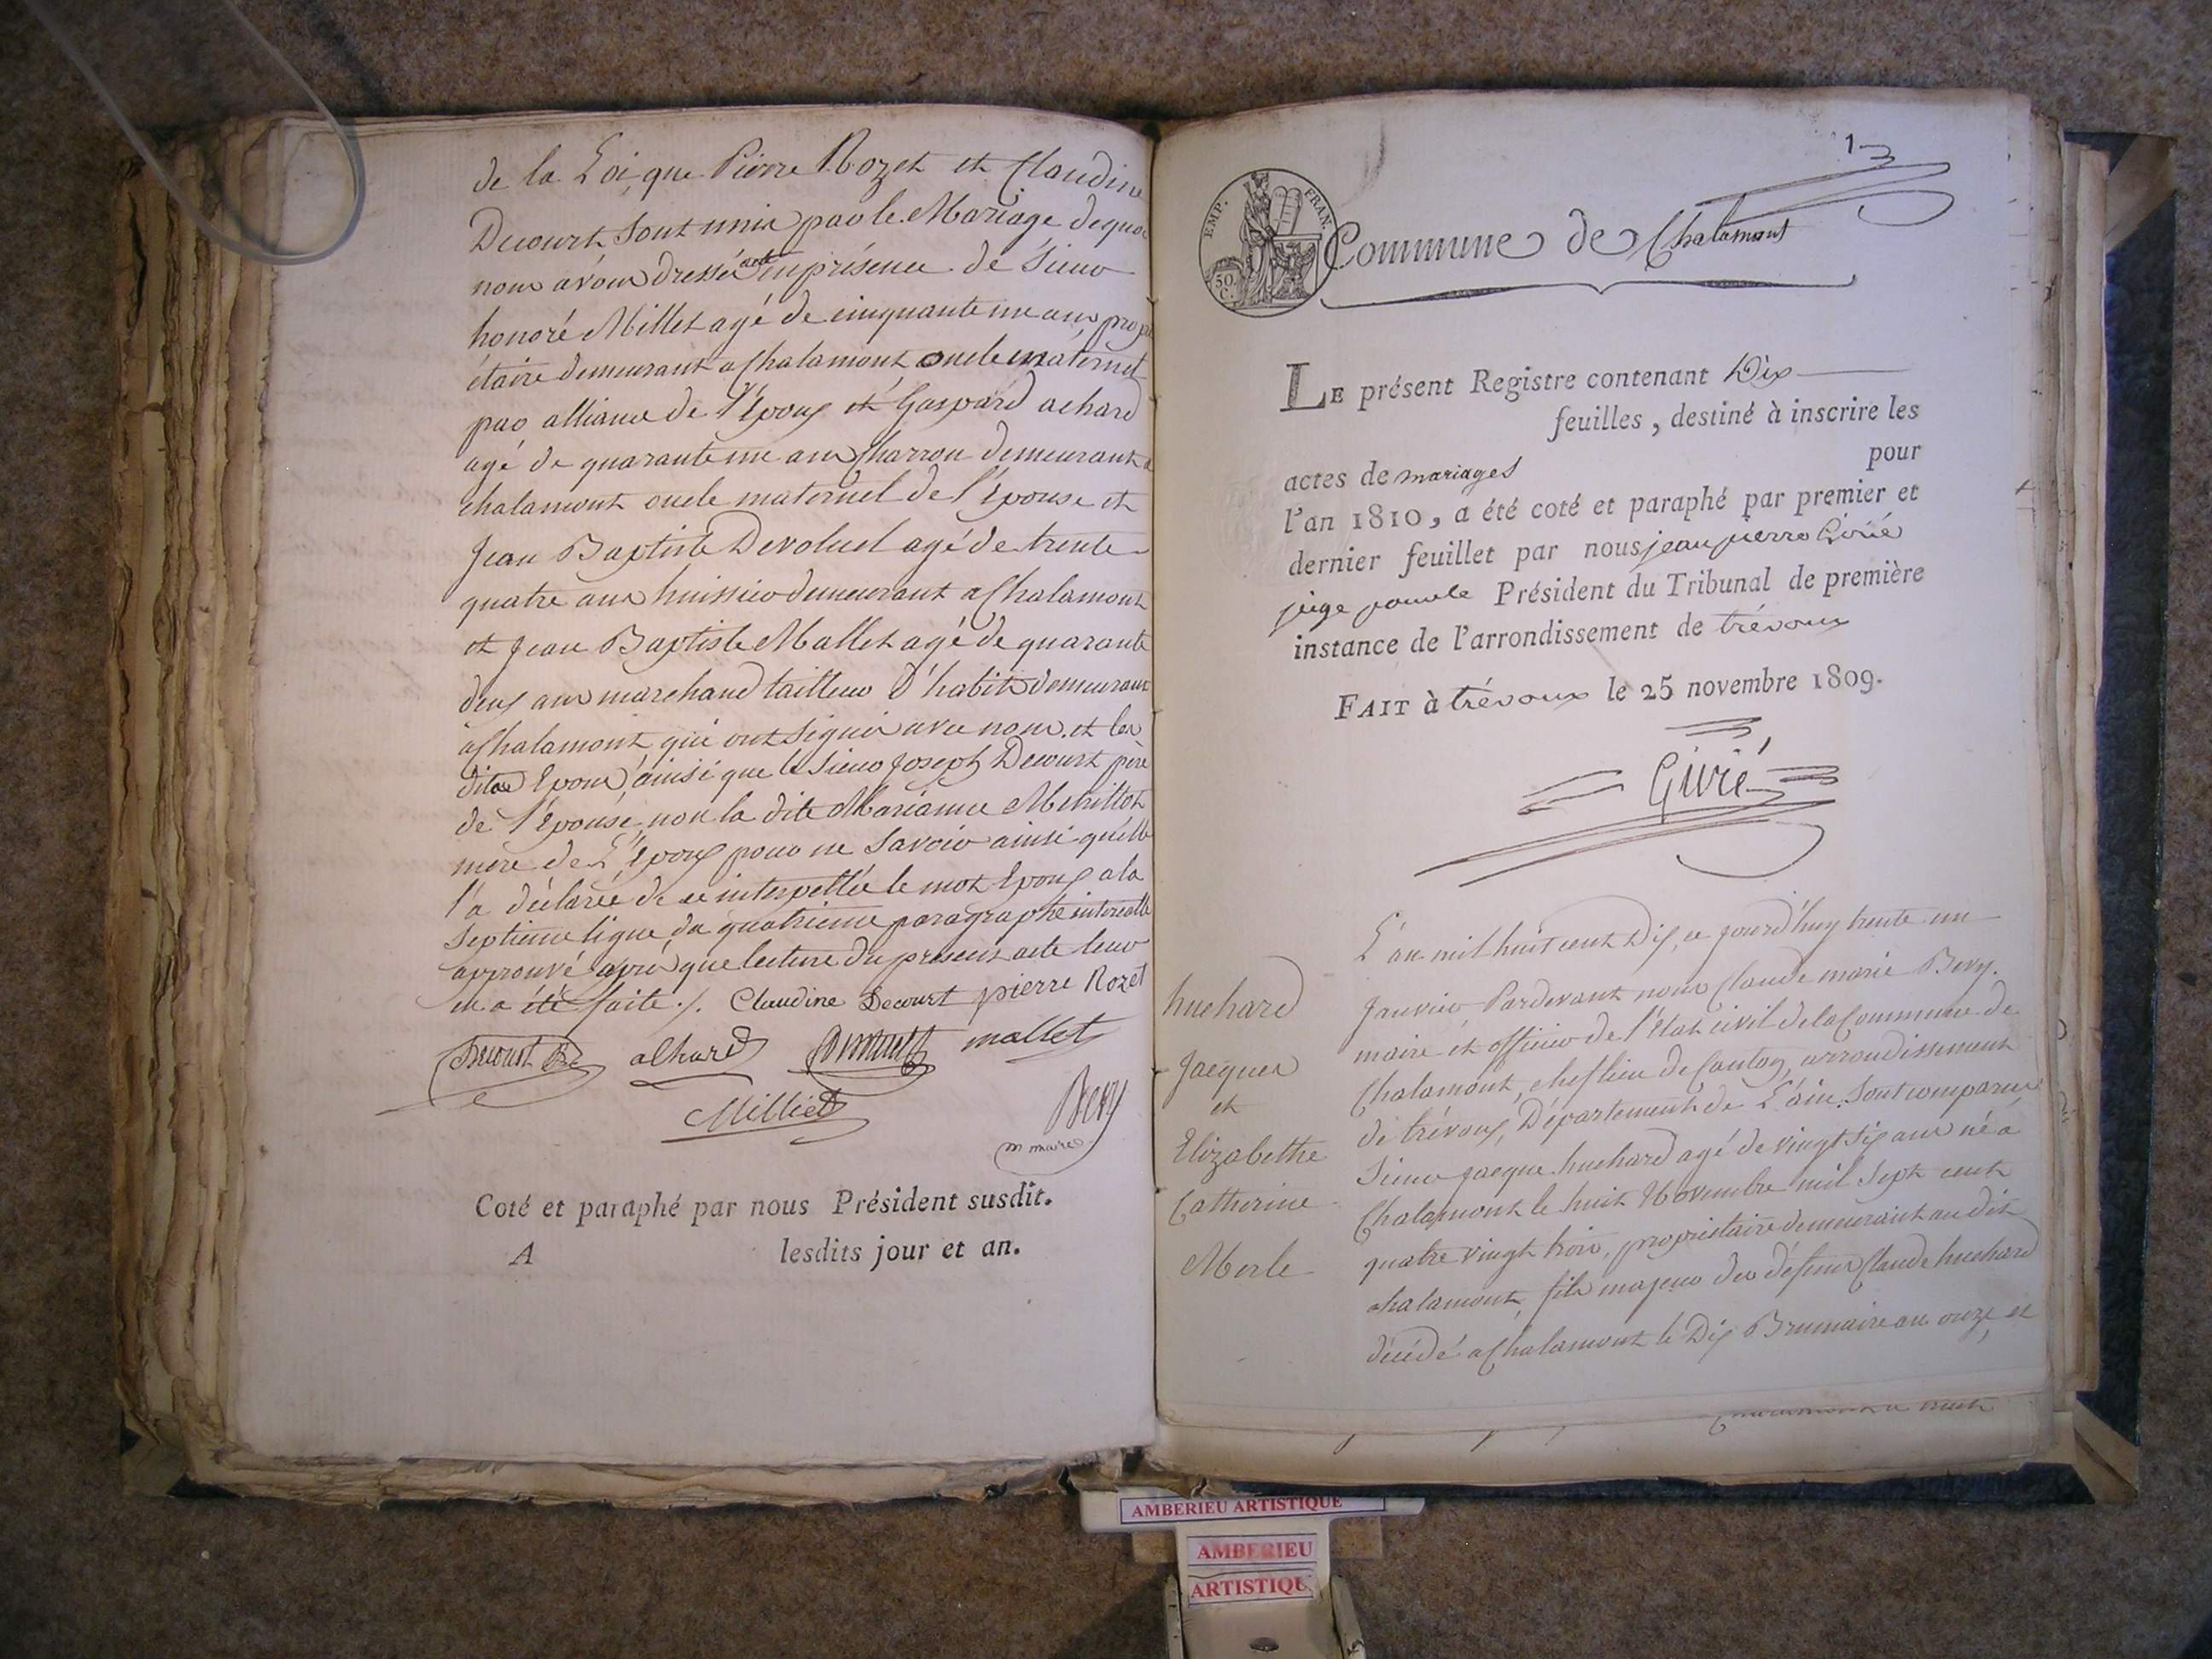 de la Loi, que Pierre Rozet et Claudine
Decourt, sont unis par le Mariage de quoi
nous avons dressé acte en présence de Sieur
honoré Millet agé de cinquante un ans, propri
étaire demeurant a Chalamont oncle maternel
par alliance de l'Epoux et Gaspard achard
agé de quarante un ans Charron demeurant a
chalamont oncle maternel de l'Epouse et
Jean Baptiste Devoluet agé de trente
quatre ans huissier demeurant a Chalamont
et Jean Baptiste Mallet agé de quarante
deux ans marchand tailleur d'habits demeurant
a Chalamont qui ont signés avec nous, et les
dits Epoux, ainsi que le Sieur Joseph Decourt père
de l'Epouse, non la dite Marianne
mere de L'Epoux pour ne savoir ainsi qu'elle
l'a déclarée de ce interpellée le mot Epoux a la
septieme ligne du quatrieme paragraphe intercalle
approuvé après que lecture du présent acte leur
en a été faite ./. Claudine Decourt pierre Rozet
Decourt achard mallet
Milliet Bevy
m maire
Coté et paraphé par nous Président susdit.
A lesdits jour et an.
1
EMP. FRAN.
50 C.
Commune de Chalamont
LE présent Registre contenant Dix
feuilles, destiné à inscrire les
actes de mariages pour
l'an 1810, a été coté et paraphé par premier et
dernier feuillet par nous jean pierre Givié
juge pour le Président du Tribunal de première
instance de l'arrondissement de trévoux
FAIT à trévoux le 25 novembre 1809.
Givié
huchard
Jacques
et
Elizabethe
Catherine
Merle
L'an mil huit cent Dix, ce jourd'huy trente un
Janvier Pardevant nous Claude marie Bevy
maire et officier de l'Etat civil de la Commune de
Chalamont, chef lieu de Canton, arrondissement
de trévoux, Département de L'ain. Sont comparus
Sieur Jacque huchard agé de vingt six ans né a
Chalamont le huit Novembre mil sept cent
quatre vingt trois, propriétaire demeurant au dit
chalamont, fils majeur des défunts Claude huchard
décédé a Chalamont le Dix Brumaire an onze et
AMBERIEU ARTISTIQUE
AMBERIEU
ARTISTIQU